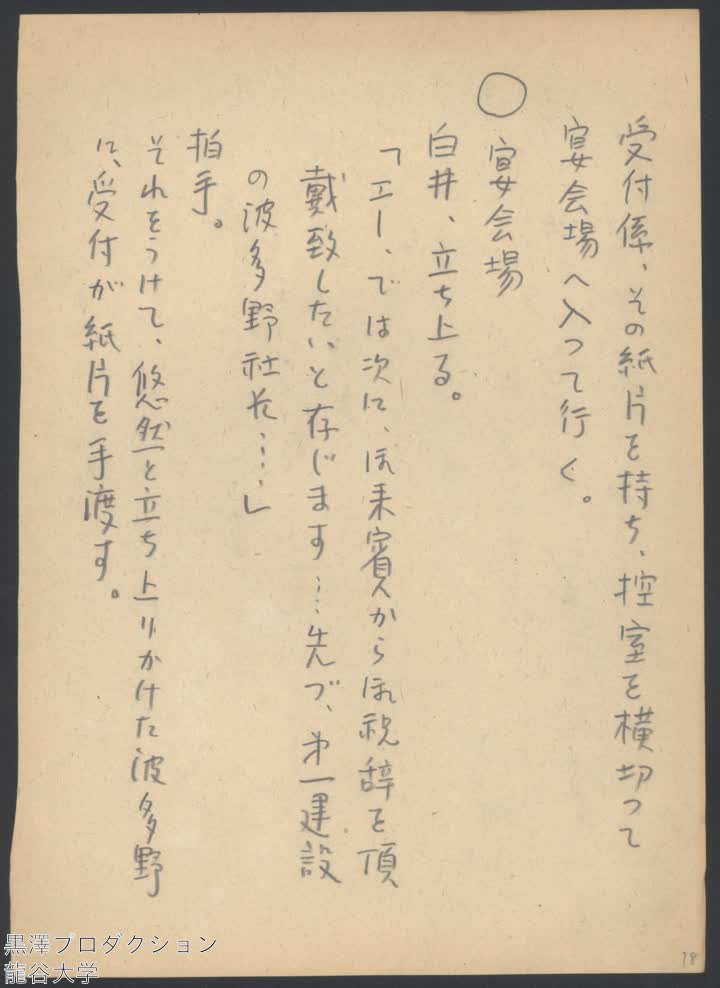 受付係、その紙片を持ち、控室を横切って
宴会場へ入って行く。
○
宴会場
白井、立ち上る。
「エー、では次に、御来賓から御祝辞を頂
戴致したいと存じます……先づ、第一建設
の波多野社長……」
拍手。
それをうけて、悠然と立ち上りかけた波多野
に、受付が紙片を手渡す。
18
黒澤プロダクション
龍谷大学